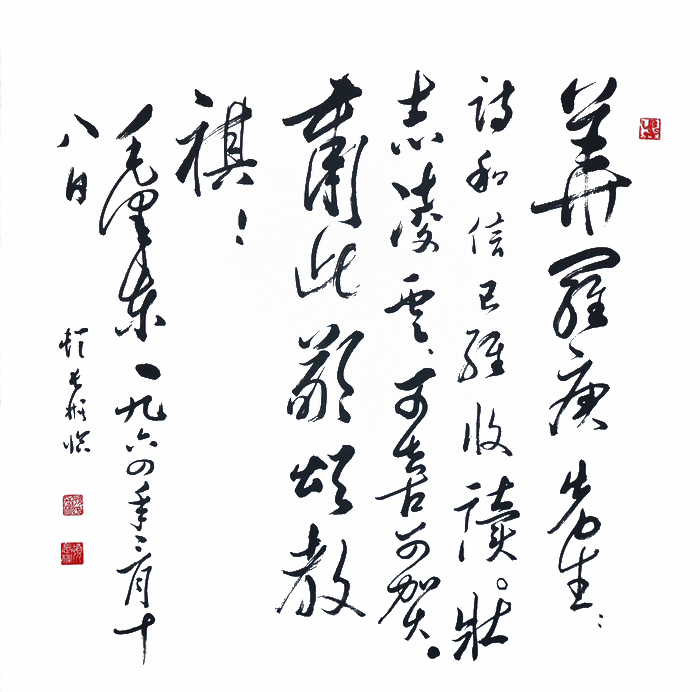 華羅庚先生：
詩和信已經收讀。壯
志凌雲、可喜可賀。
肅此敬頌教
祺！
毛澤東一九六四年三月十
八日
長臨